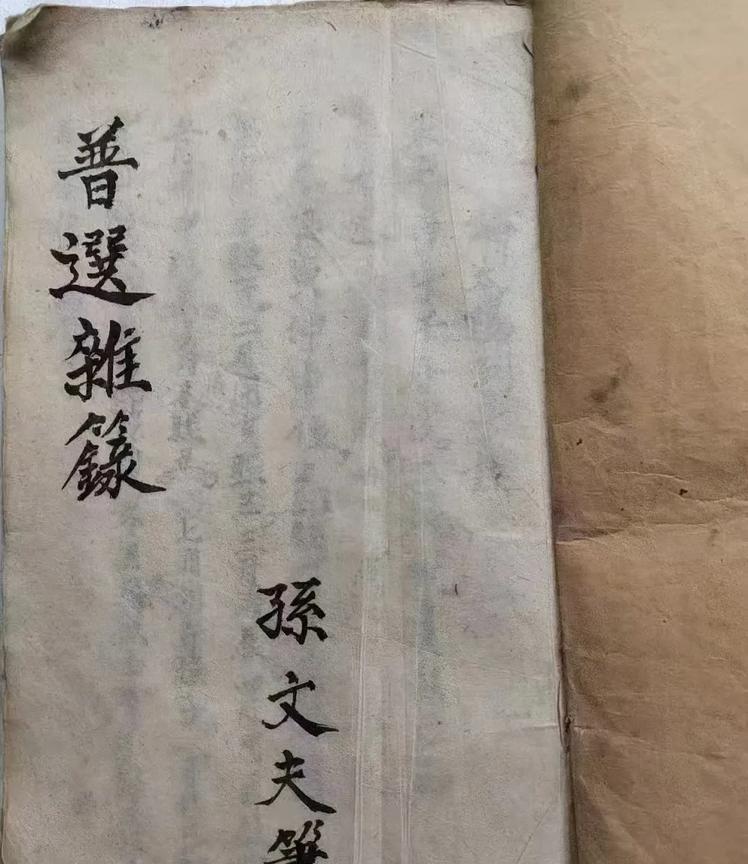 普選雜籙
孫文夫筆